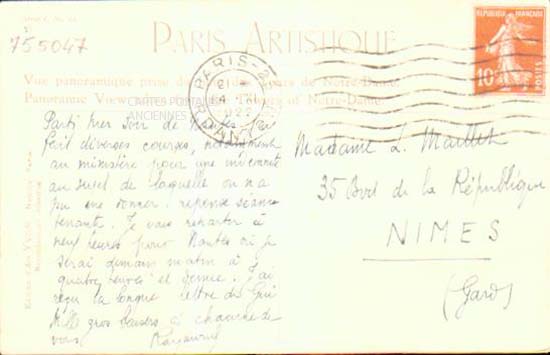 755047
PARIS ARTISTIQUE
RÉPUBLIQUE FRANÇAISE
10
POSTES
PARIS
Vue panoramique prise des Tours de Notre-Dame.
Panoramic View Towers of Notre-Dame.
CARTES POSTALES
ANCIENNES
Parti hier soir de
fait diverses courses, notamment
au ministère pour une indemnité
au sujet de laquelle on n'a
pu me donner réponse séance
tenante. Je vais repartir à
neuf heures pour Nantes où je
serai demain matin à
quatre heures et demie. J'ai
reçu la longue lettre de Gui
Mille gros baisers à chacune de
vous
Madame L. Maillet
35 Bvd de la République
NIMES
(Gard)